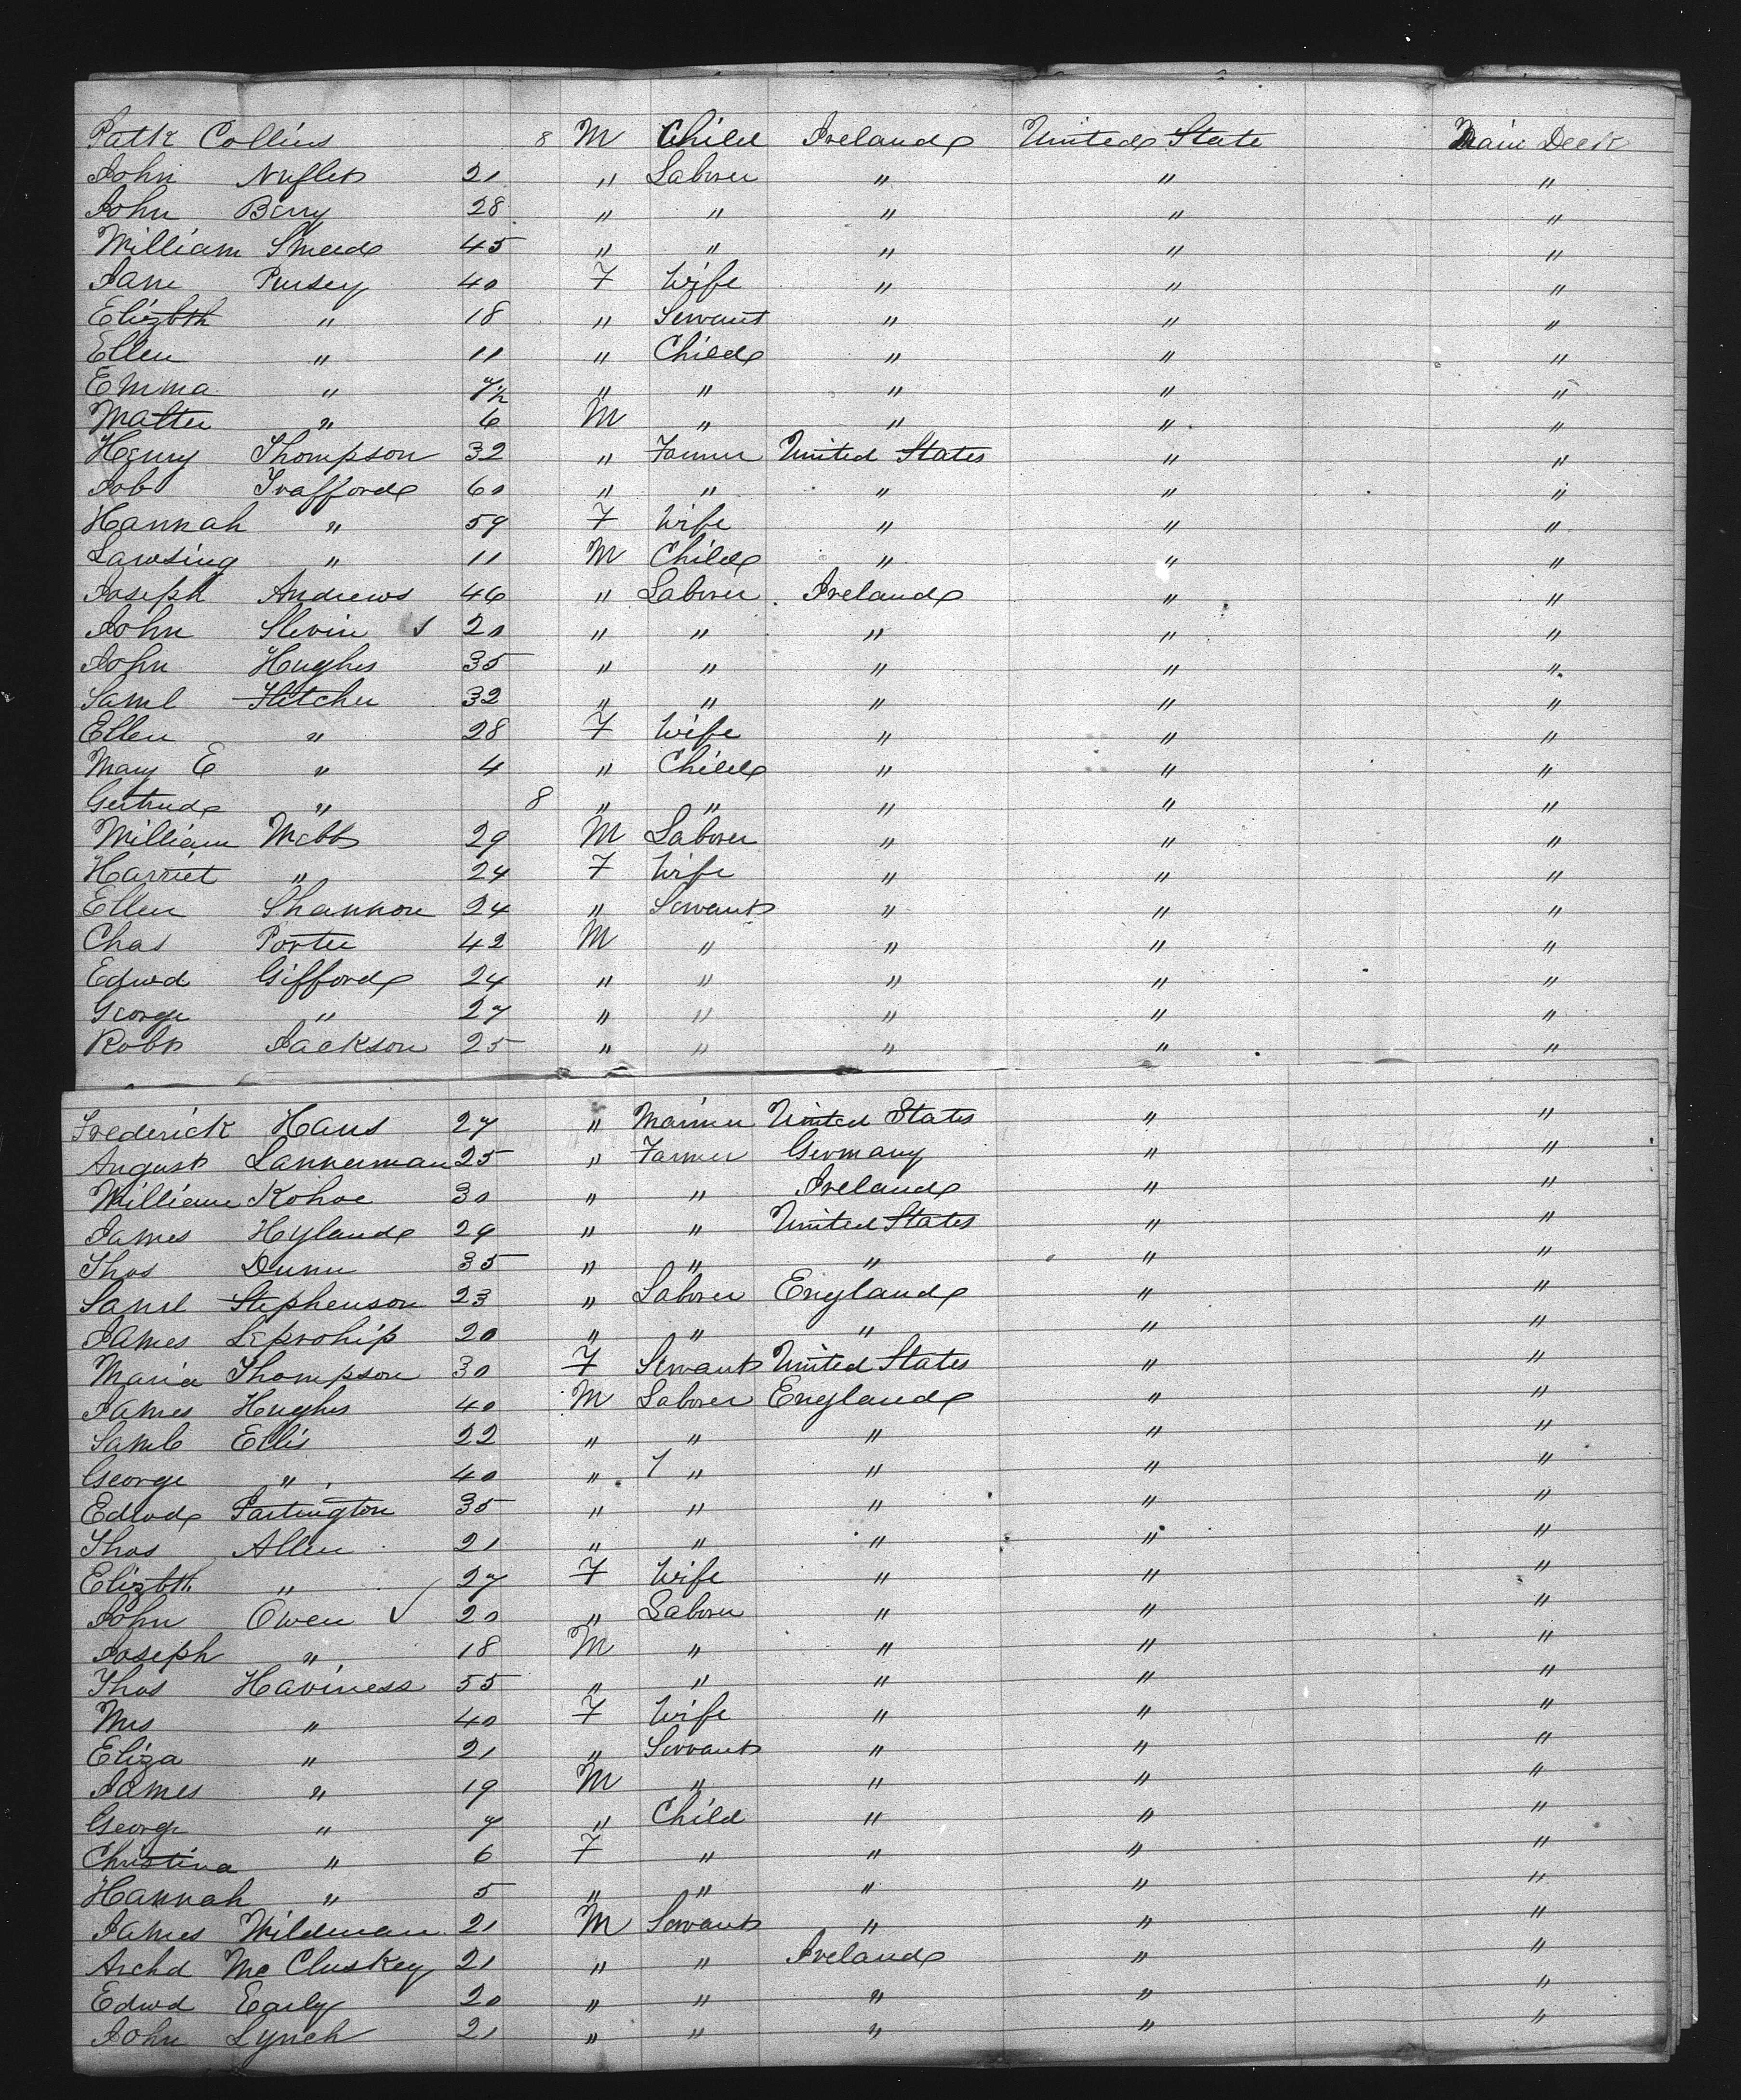 Patk Collins 8 M Child Ireland United State Main Deck
John 21 " Laborer " " "
John Berry 28 " " " " "
William Smead 45 " " " " "
Jane Pursey 40 F Wife " " "
Elizbth " 18 " Servant " " "
Ellen " 11 " Child " " "
Emma " 7½ " " " " "
Walter " 6 M " " " "
Henry Thompson 32 " Farmer United States " "
Job Trafford 60 " " " " "
Hannah " 59 F Wife " " "
" 11 M Child " " "
Joseph Andrews 46 " Laborer Ireland " "
John Slevin 20 " " " " "
John Hughes 35 " " " " "
Saml Fletcher 32 " " " " "
Ellen " 28 F Wife " " "
Mary E " 4 " Child " " "
Gertrude " 8 " " " " "
William Webb 29 M Laborer " " "
Harriet " 24 F Wife " " "
Ellen Shannon 24 " Servant " " "
Chas Porter 42 M " " " "
Edwd Gifford 24 " " " " "
George " 27 " " " " "
Robt Jackson 25 " " " " "
Frederick Hans 27 " Mariner United States " "
August Lannerman 25 " Farmer Germany " "
William Kohoe 30 " " Ireland " "
James Hyland 29 " " United States " "
Thos Dunn 35 " " " " "
Saml Stephenson 23 " Laborer England " "
James 20 " " " " "
Maria Thompson 30 F Servant United States " "
James Hughes 40 M Laborer England " "
Saml Ellis 22 " " " " "
George " 40 " " " " "
Edwd Partington 35 " " " " "
Thos Allen 21 " " " " "
Elizbth " 27 F Wife " " "
John Owen ✓ 20 " Laborer " " "
Joseph " 18 M " " " "
Thos Haviness 55 " " " " "
Mrs " 40 F Wife " " "
Eliza " 21 " Servant " " "
James " 19 M " " " "
George " 7 " Child " " "
Christina " 6 F " " " "
Hannah " 5 " " " " "
James Wildman 21 M Servant " " "
Archd McCluskey 21 " " Ireland " "
Edwd Early 20 " " " " "
John Lynch 21 " " " " "